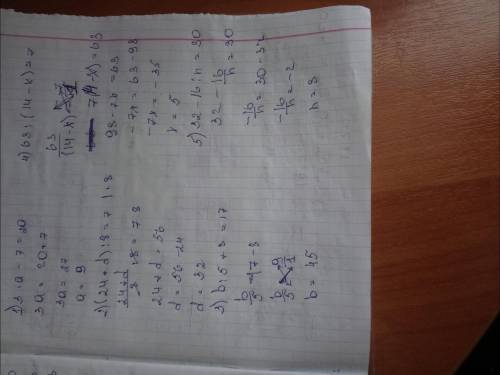 1) 3·a - 7 = 20
3a = 20+7
3a = 27
a = 9
2) (24+d):8 = 7 | ·8
24+d/8 ·8 = 7·8
24+d = 56
d = 56-24
d = 32
3) b:5+8 = 17
b/5 = 17-8
b = 45
4) 63:(14-x) = 7
63/(14-x)
7(14-x) = 63
98-7x = 63
-7x = 63-98
-7x = -35
x = 5
5) 32-16:n = 30
32 - 16/n = 30
-16/n = 30-32
-16/n = -2
n = 8